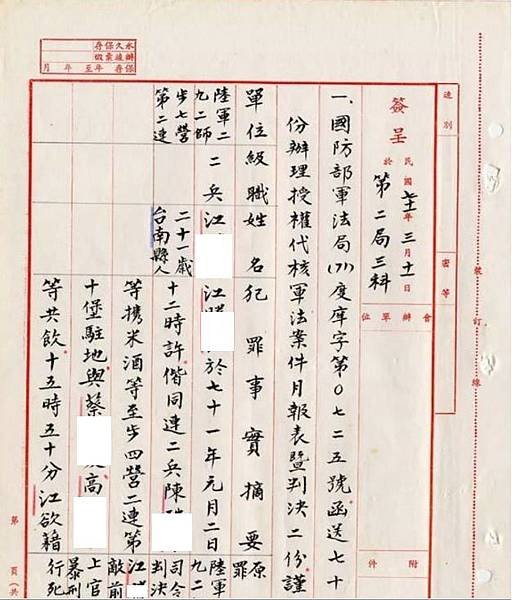 裝訂線
速別
密等
簽呈
於民國七十一年三月十一日
第二局三科
會辦單位
附件
一、國防部軍法局(71)度庫字第0七二五號函送七十
份辦理授權代核軍法案件月報表暨判決二份謹
單位級職姓名犯罪事實摘要
原
罪
陸軍二
九二師
步七營
第二連
二兵
江
二十一歲
台南縣人
江
於七十一年元月二日
十二時許偕同連二兵陳
等携米酒等至步四營二連第
十堡駐地與蔡
高
等共飲十五時五十分江欲藉
陸軍
九二
司令
判決
江
敵前
上官
暴刑
行死
永久保存
保存 年至 年 月
第
頁(共